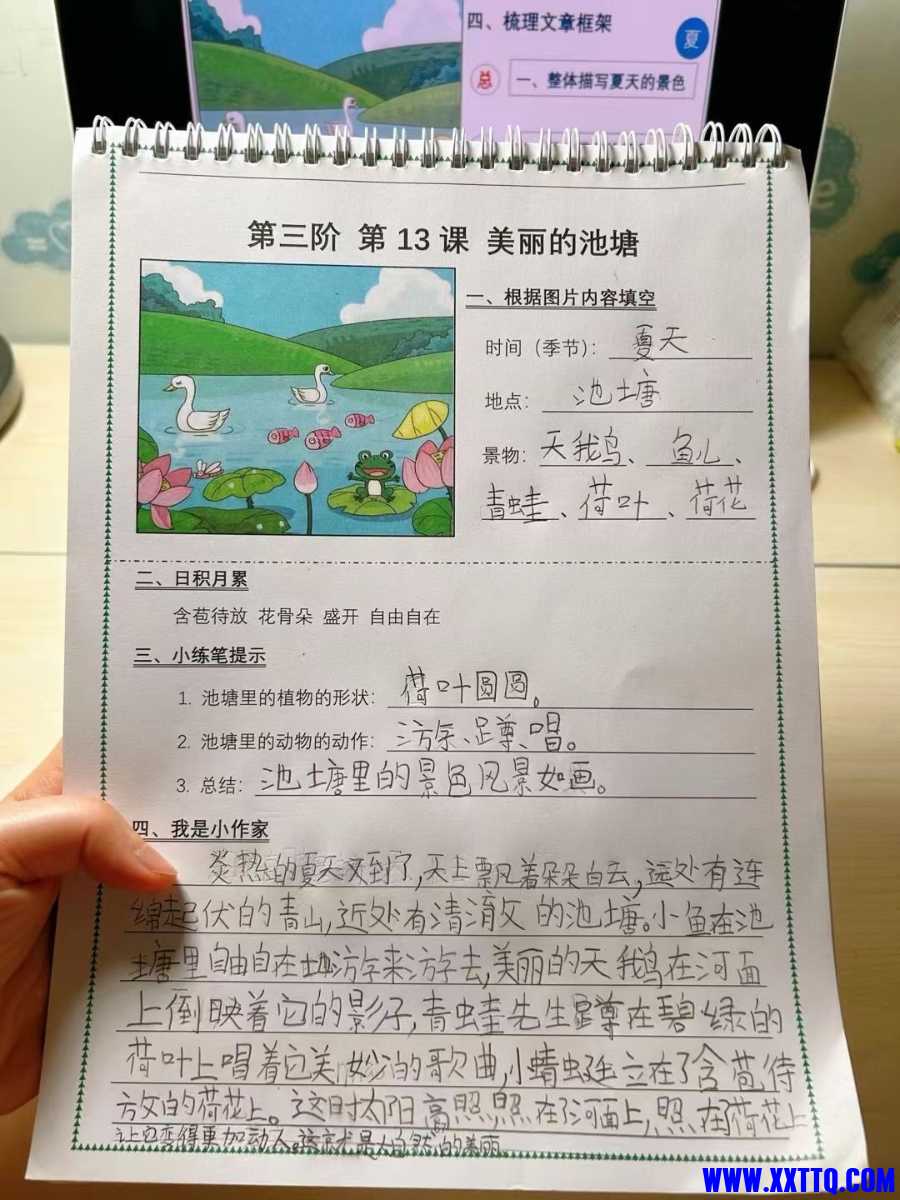 四、梳理文章框架
夏
总
一、整体描写夏天的景色
第三阶 第 13 课 美丽的池塘
一、根据图片内容填空
时间（季节）： 夏天
地点： 池塘
景物： 天我鸟、鱼儿、
青蛙、荷叶、荷花
二、日积月累
含苞待放 花骨朵 盛开 自由自在
三、小练笔提示
1. 池塘里的植物的形状： 荷叶圆圆。
2. 池塘里的动物的动作： 游、蹲、唱。
3. 总结： 池塘里的景色风景如画。
四、我是小作家
炎热的夏天又到了，天上飘着朵朵白云，远处有连
绵起伏的青山，近处有清澈的池塘。小鱼在池
塘里自由自在地游来游去，美丽的天鹅在河面
上倒映着它的影子，青蛙先生蹲在碧绿的
荷叶上唱着它美妙的歌曲，小蜻蜓立在了含苞待
放的荷花上。这时太阳高照，照在了河面上，照在了荷花上
让它变得更加动人。这就是大自然的美丽。
WWW.XXTTQ.COM